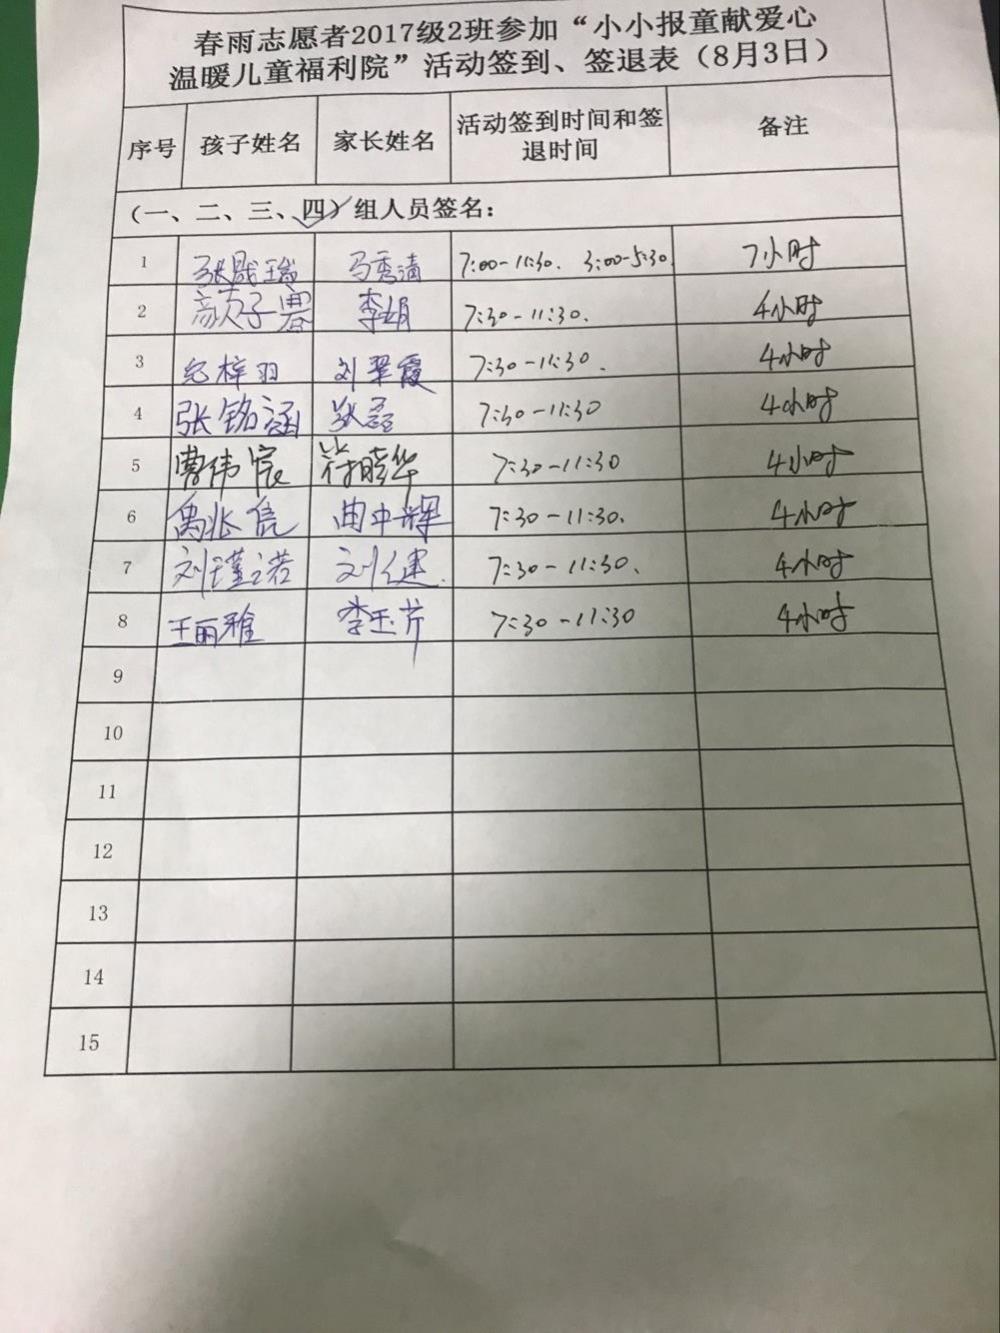 春雨志愿者2017级2班参加“小小报童献爱心
温暖儿童福利院”活动签到、签退表（8月3日）
序号 孩子姓名 家长姓名 活动签到时间和签退时间 备注
（一、二、三、四）组人员签名：
1 张晟瑞 马秀清 7:00-11:30. 3:00-5:30 7小时
2 颜子骞 李娟 7:30-11:30. 4小时
3 纪梓羽 刘翠霞 7:30-11:30. 4小时
4 张铭涵 张磊 7:30-11:30 4小时
5 曹伟宸 符晓华 7:30-11:30 4小时
6 禹兆信 由中辉 7:30-11:30. 4小时
7 刘瑾诺 刘健 7:30-11:30. 4小时
8 王丽雅 李玉芹 7:30-11:30 4小时
9
10
11
12
13
14
15